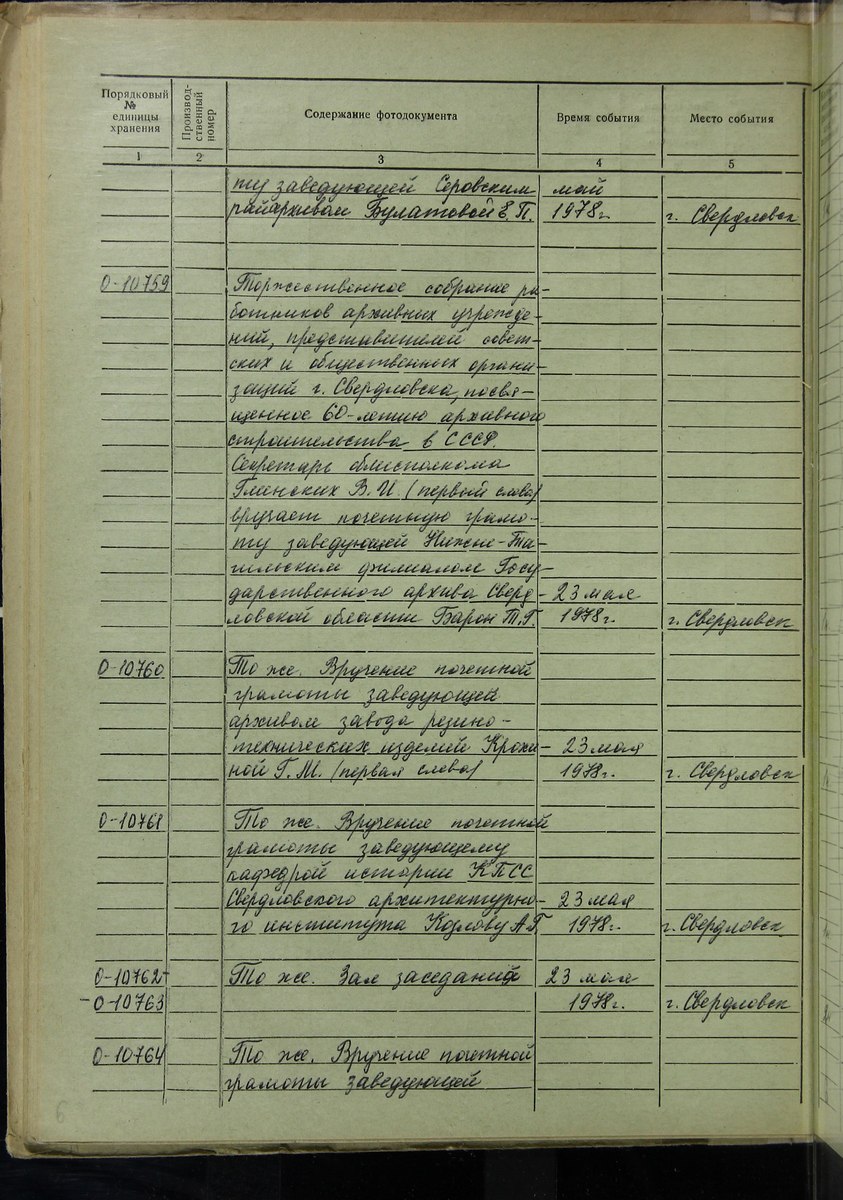 Порядковый № единицы хранения
Производственный номер
Содержание фотодокумента
Время события
Место события
1 2 3 4 5
ту заведующей Серовским май
райархивом Булатовой Е.П. 1978г. г. Свердловск
О-10759 Торжественное собрание ра-
ботников архивных учрежде-
ний, представителей совет-
ских и общественных органи-
заций г. Свердловска, посвя-
щенное 60-летию архивного
строительства в СССР.
Секретарь облисполкома
Глинских В.И. (первый слева)
вручает почетную грамо-
ту заведующей Нижне-Та-
гильским филиалом Госу-
дарственного архива Сверд- 23 мая
ловской области Барон Т.Г. 1978г. г. Свердловск
О-10760 То же. Вручение почетной
грамоты заведующей
архивом завода резино-
технических изделий Крохи- 23 мая
ной Г.М. (первая слева) 1978г. г. Свердловск
О-10761 То же. Вручение почетной
грамоты заведующему
кафедрой истории КПСС
Свердловского архитектурно- 23 мая
го института Козлову А.Г. 1978г. г. Свердловск
О-10762- То же. Зал заседаний 23 мая
-О-10763 1978г. г. Свердловск
О-10764 То же. Вручение почетной
грамоты заведующей
6